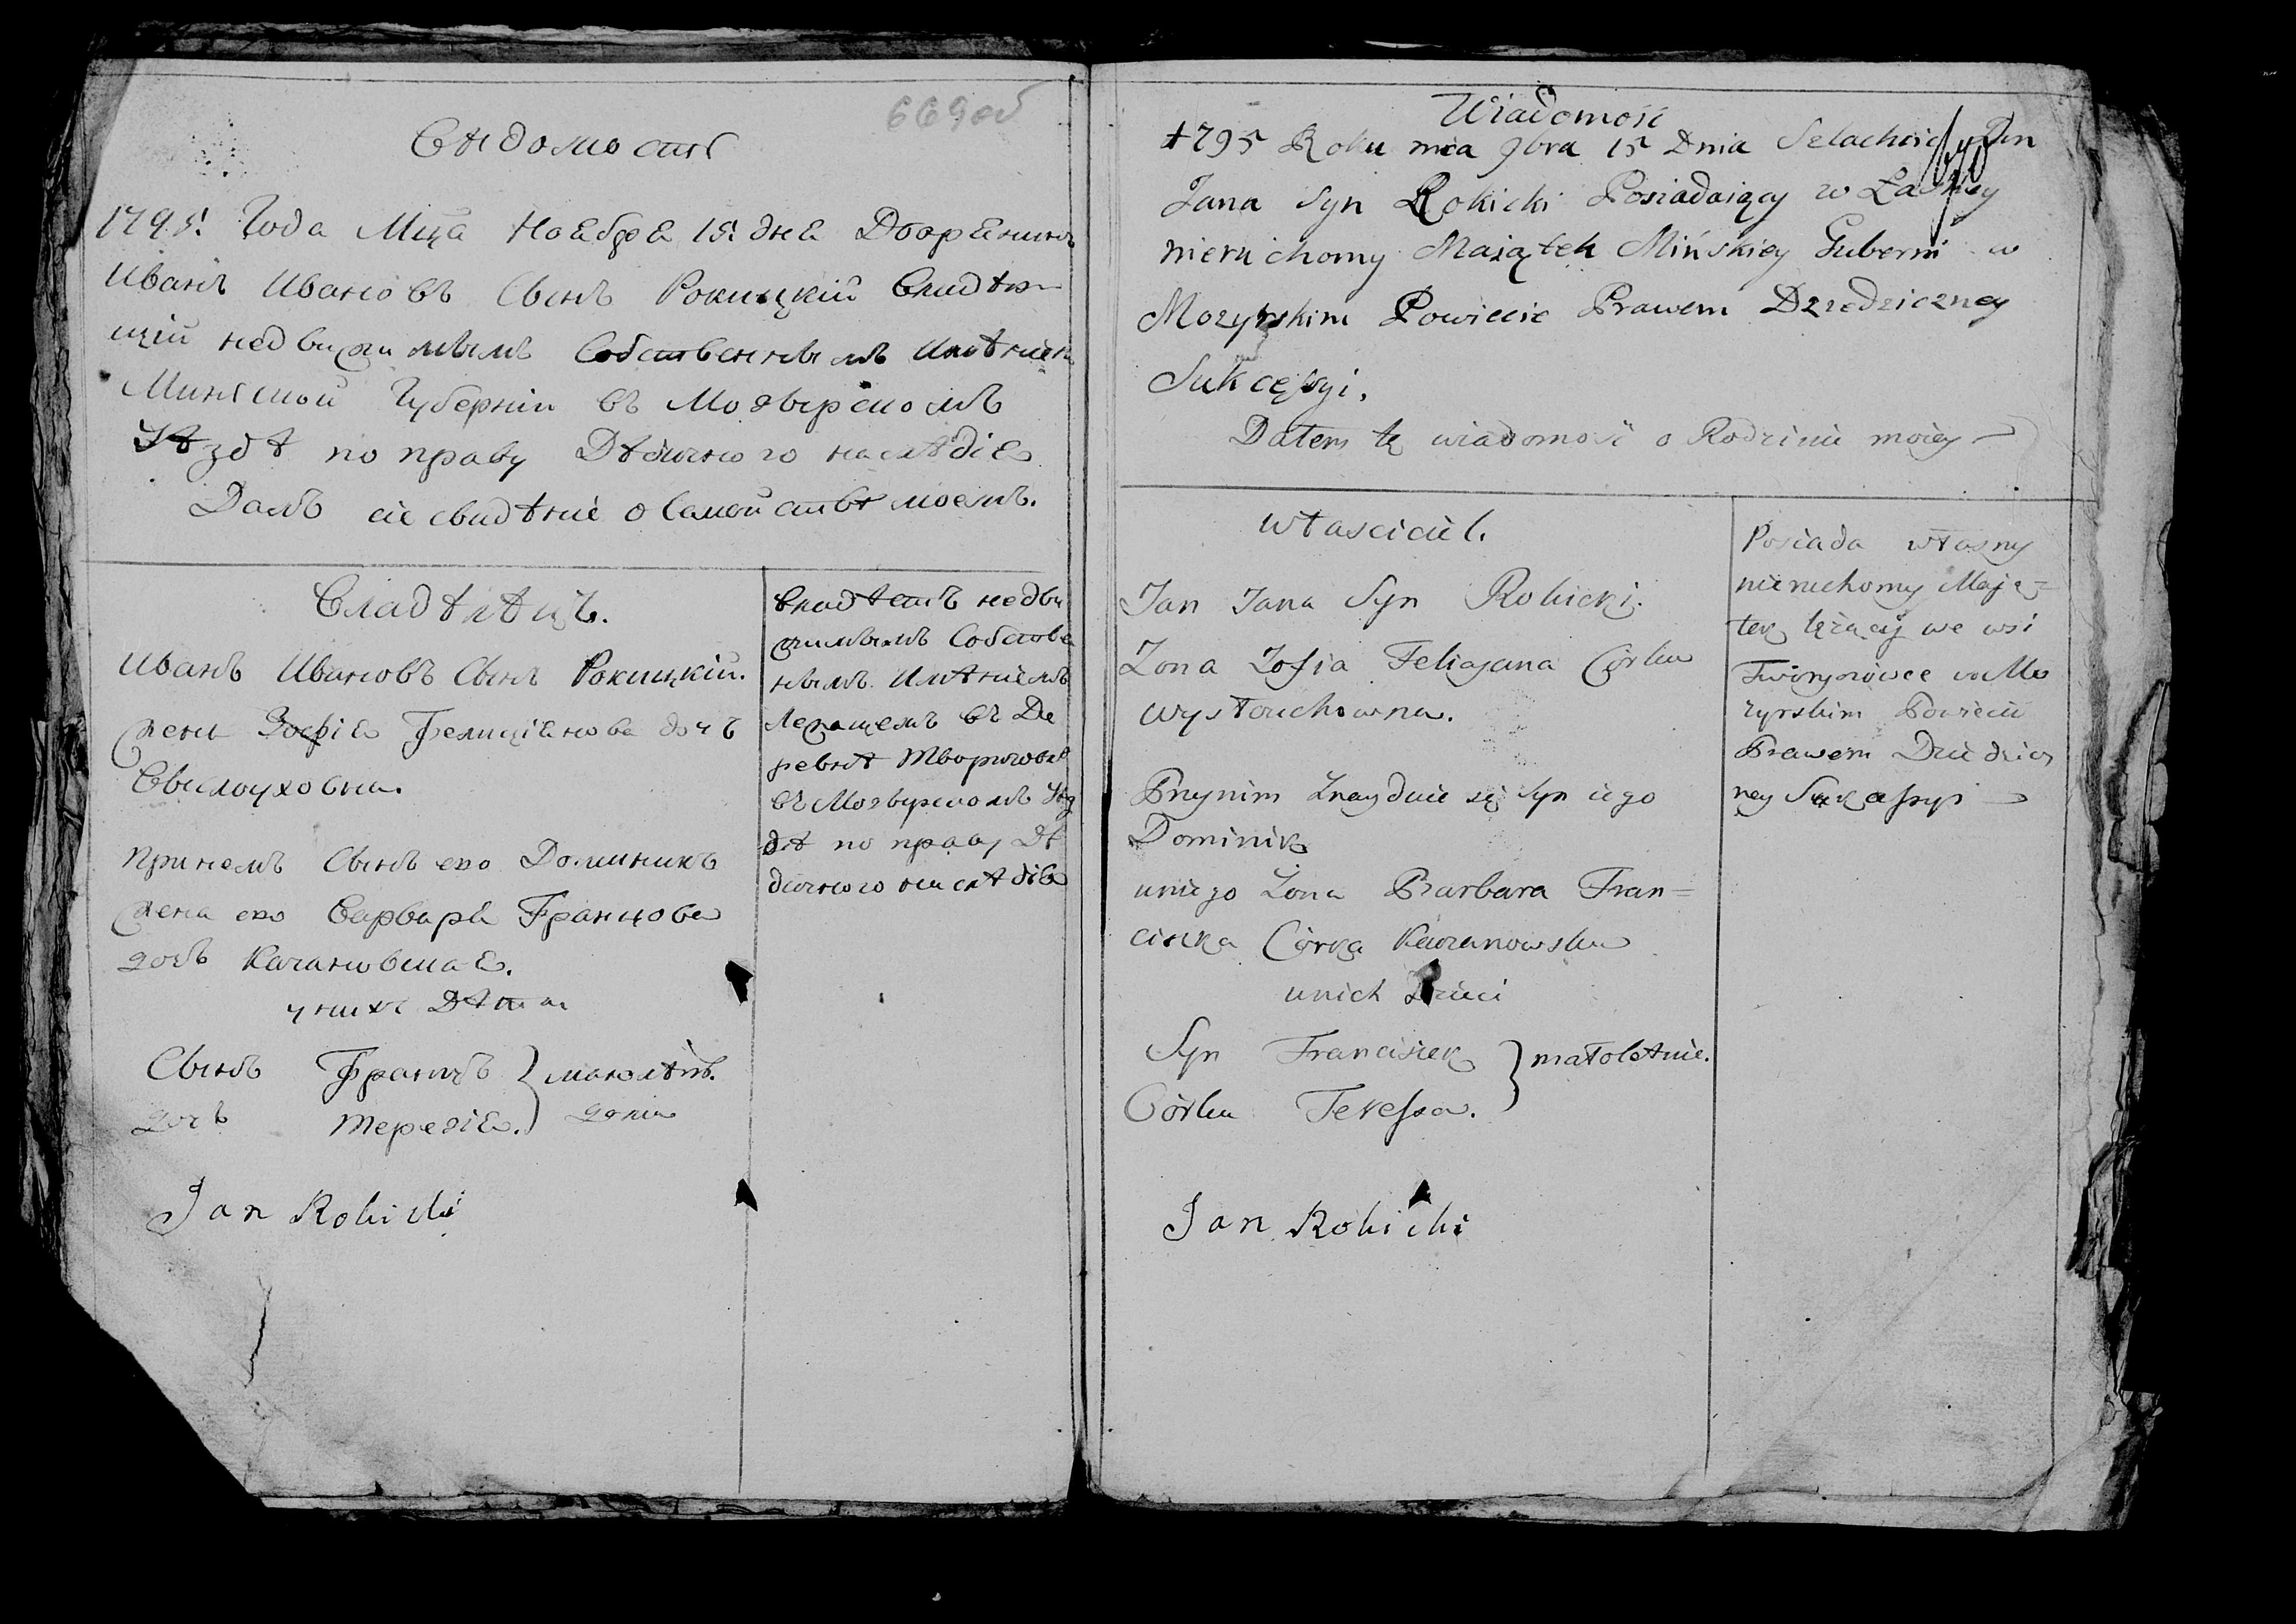 669об
Вѣдомость
1795: Года Мца Ноября 15: дня Дворянинъ
Иванъ Ивановъ Сынъ Рокицкій Владѣю-
щій недвижимымъ Собственнымъ Имѣнiем
Минской Губерніи въ Мозырскомъ
Уѣздѣ по праву Дѣдичного наслѣдія
Далъ сіе свидѣніе о Семействѣ моемъ.
Владѣлѣцъ.
Иванъ Ивановъ Сынъ Рокицкій.
жена Зофія Фелиціянова дочъ
Выслоуховна.
принемъ Сынъ его Доминикъ
жена его Варвара Францова
дочь Качановская.
у нихъ Дѣти
Сынъ Францъ } малолѣтъ.
дочь Терезія.
Jan Rokicki
владѣетъ недви
жимымъ Собстве
нымъ Имѣніемъ
Лежащемъ въ Де
ревнѣ
въ Мозырскомъ Уѣз
дѣ по праву Дѣ
дичного наслѣдія
Wiadomość
1795 Roku mca 9bra 15 Dnia Jan
Jana Syn Rokicki Posiadaiący w
nieruchomy Maiątek Mińskiey Guberni w
Mozyrskim Powiecie Prawem Dziedziczney
Sukcęssyi.
Datem tę wiadomość o Rodzinie moiey
własciciel.
Jan Jana Syn Rokicki.
Zona Zofia Felicyana Córka
Wysłouchowna.
Przynim Znayduie się Syn iego
Dominik
uniego Zona Barbara Fran=
ciszka Córka Kaczanowska
unich Dzieci
Syn Franciszek } małoletnie.
Córka Teressa.
Jan Rokicki
Posiada własny
nieruchomy Mają=
tek lężący we wsi
w Mo
zyrskim Powiecie
Prawem Dziedzicz
ney Sukcessyi